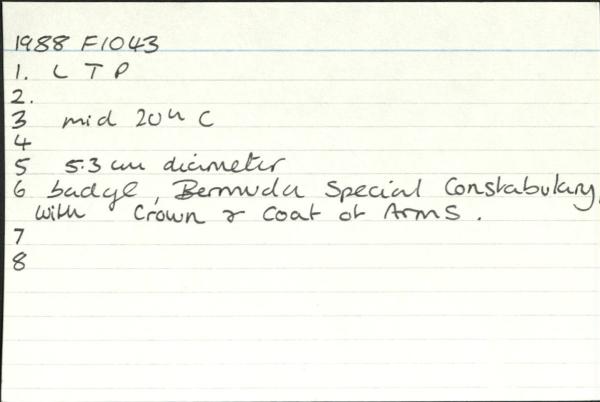 1988 F1043
1. L T P
2.
3 mid 20th C
4
5 5.3 cm diameter
6 badge, Bermuda Special Constabulary,
with Crown & Coat of Arms.
7
8